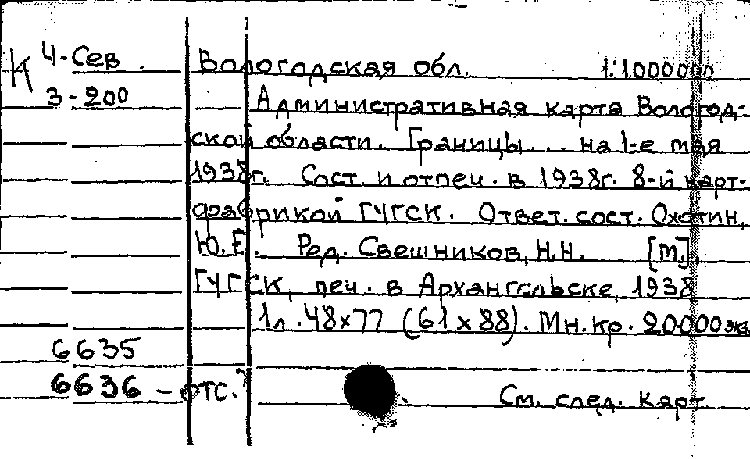 К Ч-Сев. Вологодская обл. 1:1000000
3-200 Административная карта Вологод-
ской области. Границы... на 1-е мая
1938г. Сост. и отпеч. в 1938г. 8-й карт-
фабрикой ГУГСК. Ответ. сост. Охотин,
Ю.Е. Ред. Свешников, Н.Н. [М.],
ГУГСК, печ. в Архангельске, 1938
1л. 48х77 (61х88). Мн. кр. 20000 экз
6635
6636 - отс.?
См. след. карт.